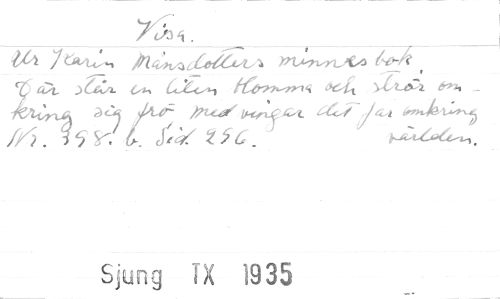 Visa.
Ur Karin Månsdotters minnesbok
Där står en liten blomma och strör om-
kring sig frö med vingar det far omkring
Nr. 398. b. Sid. 296. världen.
Sjung TX 1935